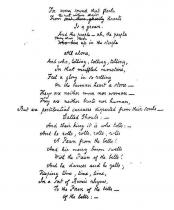 For every sound that floats
From out their ghostly throats
Is a groan.
And the people — ah, the people
They who live up in the steeple
All alone,
And who, tolling, tolling, tolling,
In that muffled monotone,
Feel a glory in so rolling
On the human heart a stone —
They are neither man nor woman —
They are neither brute nor human,
But are pestilential carcases departed from their souls —
Called Ghouls: —
And their king it is who tolls: —
And he rolls, rolls, rolls, rolls
A Pæan from the bells!
And his merry bosom swells
With the Pæan of the bells!
And he dances and he yells;
Keeping time, time, time,
In a sort of Runic rhyme,
To the Pæan of the bells —
Of the bells: —